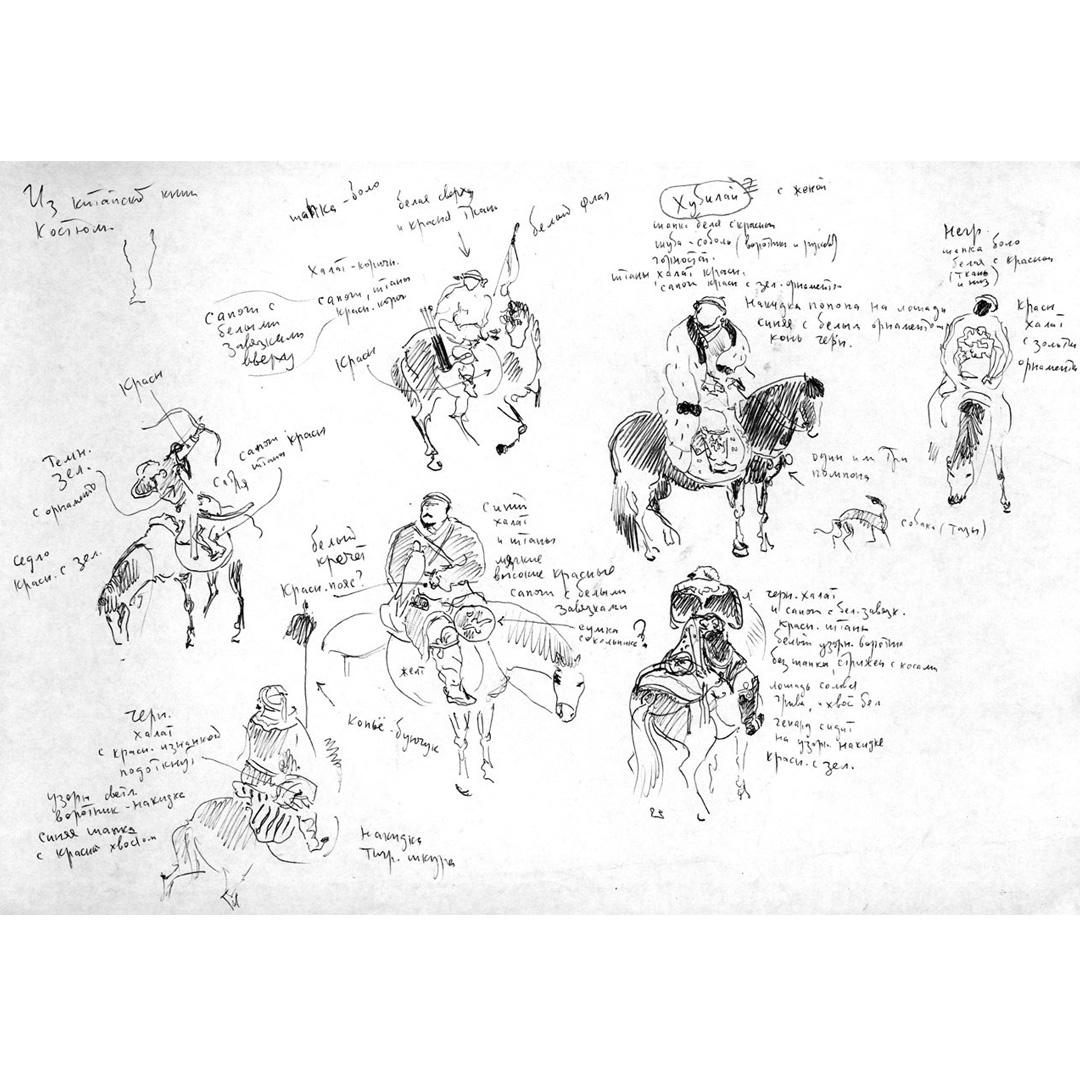 Из китайской книги
Костюм.
шапка-боло
белая сверху
и красной ткани
белый флаг
Халат-коричн.
сапоги, штаны
красн. корич
сапоги с
белыми
завязками
вверху
Красн
Хубилай
с женой
шапка белая с красной
шуба-соболь (воротник и рукава)
горностай.
штаны халат красн.
сапоги красн с зел. орнаменто
Накидка попона на лошадь
синяя с белым орнаментом
конь черн.
Негр.
шапка боло
белая с красной
(ткань
и низ)
Красн
халат
с золотым
орнаменто
Красн
Темн.
зел.
с орнаменто
сапоги красн
штаны
седло
красн. с зел.
один или три
помпона
собака (тазы)
белый
кречет
Красн. пояс?
Синий
халат
и штаны
мягкие
высокие красные
сапоги с белыми
завязками
сумка
сокольника?
желт
Копьё-бунчук
черн. халат
и сапоги с бел. завязк.
красн. штаны
белый узорн. воротник
без шапки, стрижен с косами
лошадь соловая
грива, и хвост бел
гепард сидит
на узорн. накидке
красн. с зел.
черн.
халат
с красн. изнанкой
подоткнут
узоры светл.
воротник-накидка
синяя шапка
с красной хвостом
накидка
тигр. шкура